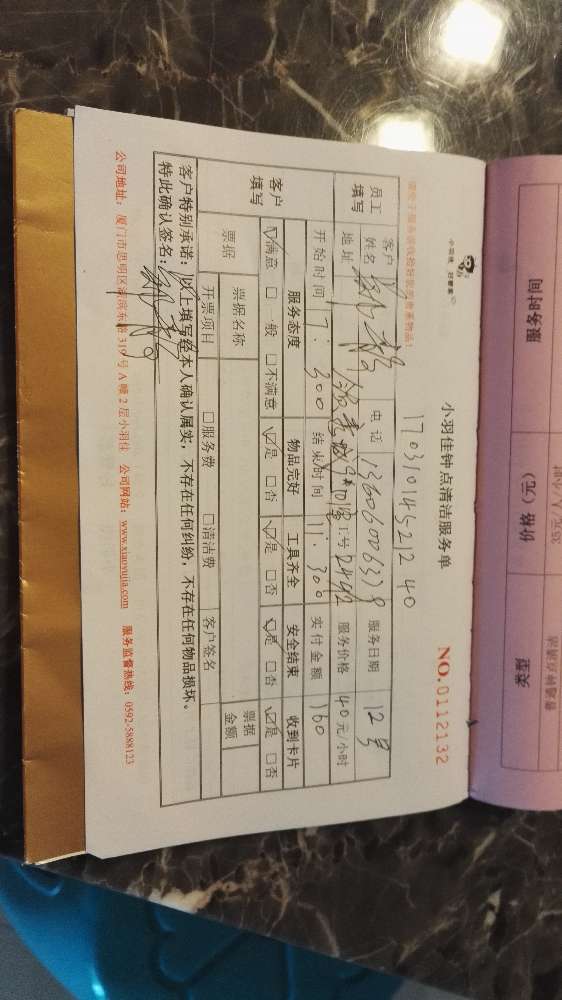 小羽佳 好管家
小羽佳钟点清洁服务单
17031014521240
NO.0112132
员工填写
客户姓名
电话
服务日期 12号
地址
工号
服务价格 40元/小时
开始时间 7:300
结束时间 11:300
实付金额 160
客户填写
服务态度 物品完好 工具齐全 安全结束 收到卡片
☑满意 □一般 □不满意 ☑是 □否 ☑是 □否 ☑是 □否 ☑是 □否
票据
票据名称
票据金额
开票项目 □服务费 □清洁费 客户签名
客户特别承诺:以上填写经本人确认属实,不存在任何纠纷,不存在任何物品损坏。
特此确认签名:
公司地址:厦门市思明区 号A幢2层小羽佳 公司网站:www.xiaoyujia.com 服务监督热线:0592-5888123
服务时间
价格(元)
类型
35元/人/小时
普通钟点清洁